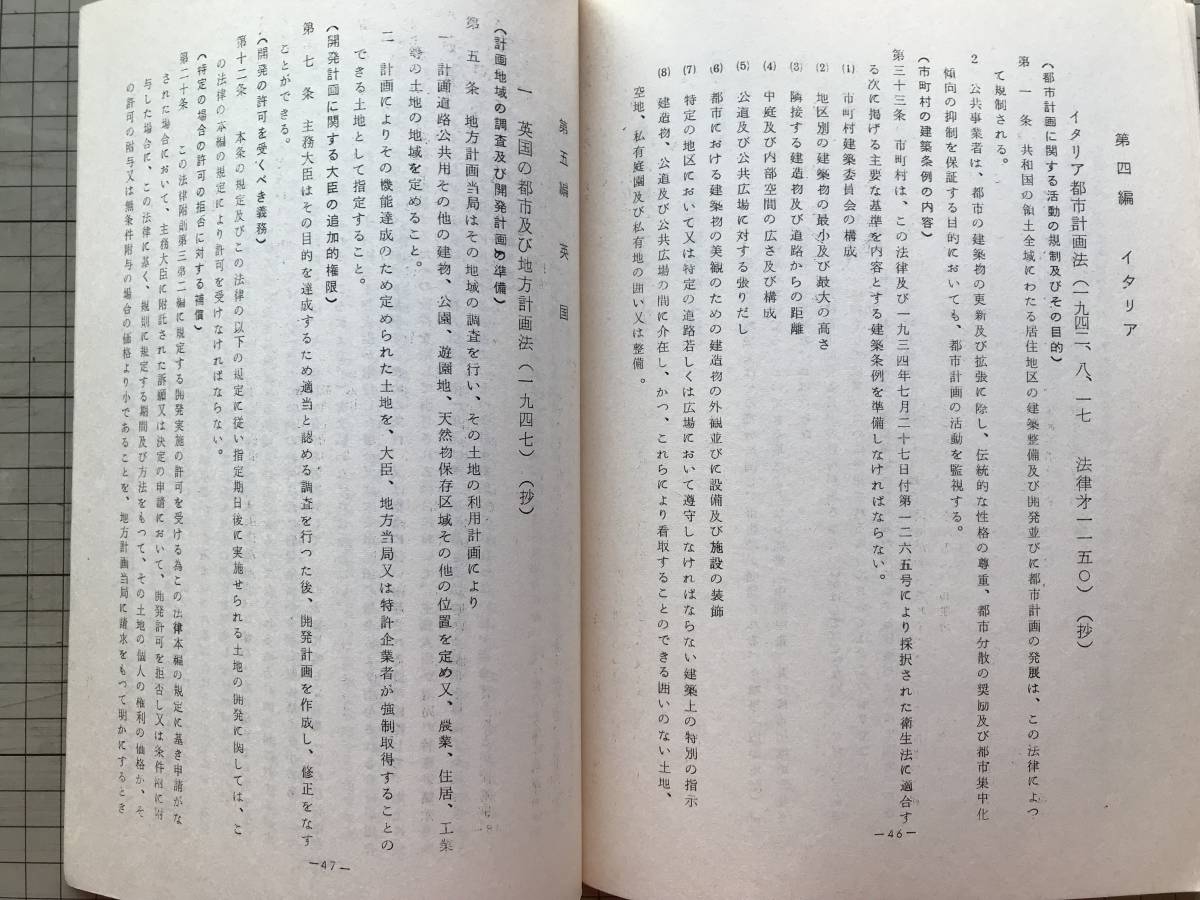 第四編　イタリア
イタリア都市計画法（一九四二、八、一七　法律才一一五〇）（抄）
（都市計画に関する活動の規制及びその目的）
第一条　共和国の領土全域にわたる居住地区の建築整備及び開発並びに都市計画の発展は、この法律によつ
て規制される。
2　公共事業者は、都市の建築物の更新及び拡張に際し、伝統的な性格の尊重、都市分散の奨励及び都市集中化
傾向の抑制を保証する目的においても、都市計画の活動を監視する。
（市町村の建築条例の内容）
第三十三条　市町村は、この法律及び一九三四年七月二十七日付第一二六五号により採択された衛生法に適合す
る次に掲げる主要な基準を内容とする建築条例を準備しなければならない。
(1)　市町村建築委員会の構成
(2)　地区別の建築物の最小及び最大の高さ
(3)　隣接する建造物及び道路からの距離
(4)　中庭及び内部空間の広さ及び構成
(5)　公道及び公共広場に対する張りだし
(6)　都市における建築物の美観のための建造物の外観並びに設備及び施設の装飾
(7)　特定の地区において又は特定の道路若しくは広場において遵守しなければならない建築上の特別の指示
(8)　建造物、公道及び公共広場の間に介在し、かつ、これらにより看取することのできる囲いのない土地、
空地、私有庭園及び私有地の囲い又は整備。
—46—
第五編　英国
一　英国の都市及び地方計画法（一九四七）（抄）
（計画地域の調査及び開発計画の準備）
第五条　地方計画当局はその地域の調査を行い、その土地の利用計画により
一　計画道路公共用その他の建物、公園、遊園地、天然物保存区域その他の位置を定め又、農業、住居、工業
等の土地の地域を定めること。
二　計画によりその機能達成のため定められた土地を、大臣、地方当局又は特許企業者が強制取得することの
できる土地として指定すること。
（開発計画に関する大臣の追加的権限）
第七条　主務大臣はその目的を達成するため適当と認める調査を行つた後、開発計画を作成し、修正をなす
ことができる。
（開発の許可を受くべき義務）
第十二条　本条の規定及びこの法律の以下の規定に従い指定期日後に実施せられる土地の開発に関しては、こ
の法律の本編の規定により許可を受けなければならない。
（特定の場合の許可の拒否に対する補償）
第二十条　この法律附則第三第二編に規定する開発実施の許可を受ける為この法律本編の規定に基き申請がな
された場合において、主務大臣に附託された訴願又は決定の申請において、開発許可を拒否し又は条件附に附
与した場合に、この法律に基く、規則に規定する期間及び方法をもつて、その土地の個人の権利の価格が、そ
の許可の附与又は無条件附与の場合の価格より小であることを、地方計画当局に請求をもつて明かにするとき
—47—